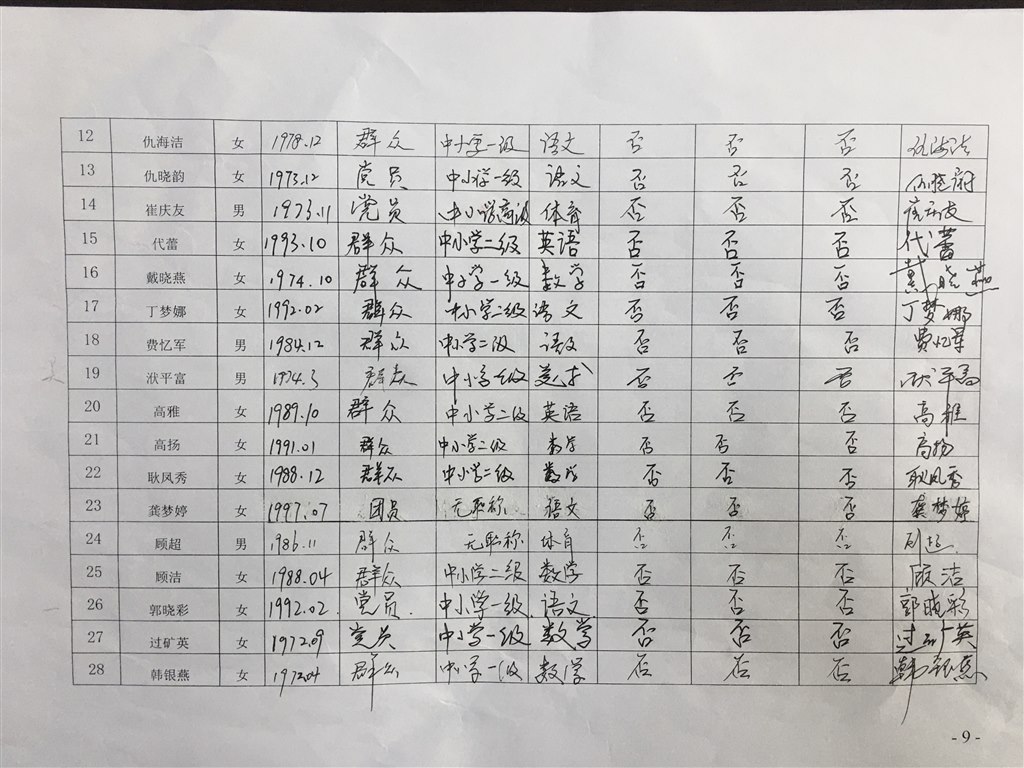 12 仇海洁 女 1978.12 群众 中小学一级 语文 否 否 否 仇海洁
13 仇晓韵 女 1973.12 党员 中小学一级 语文 否 否 否 仇晓韵
14 崔庆友 男 1973.11 党员 中小学高级 体育 否 否 否 崔庆友
15 代蕾 女 1993.10 群众 中小学二级 英语 否 否 否 代蕾
16 戴晓燕 女 1974.10 群众 中小学一级 数学 否 否 否 戴晓燕
17 丁梦娜 女 1992.02 群众 中小学二级 语文 否 否 否 丁梦娜
18 费忆军 男 1984.12 群众 中小学二级 语文 否 否 否 费忆军
19 洑平富 男 1974.3 群众 中小学一级 美术 否 否 否 洑平富
20 高雅 女 1989.10 群众 中小学二级 英语 否 否 否 高雅
21 高扬 女 1991.01 群众 中小学二级 数学 否 否 否 高扬
22 耿凤秀 女 1988.12 群众 中小学二级 数学 否 否 否 耿凤秀
23 龚梦婷 女 1997.07 团员 无职称 语文 否 否 否 龚梦婷
24 顾超 男 1986.11 群众 无职称 体育 否 否 否 顾超
25 顾洁 女 1988.04 群众 中小学二级 数学 否 否 否 顾洁
26 郭晓彩 女 1992.02. 党员. 中小学一级. 语文 否 否 否 郭晓彩
27 过矿英 女 1972.09 党员 中小学一级 数学 否 否 否 过矿英
28 韩银燕 女 1972.04 群众 中小学一级 数学 否 否 否 韩银燕
- 9 -